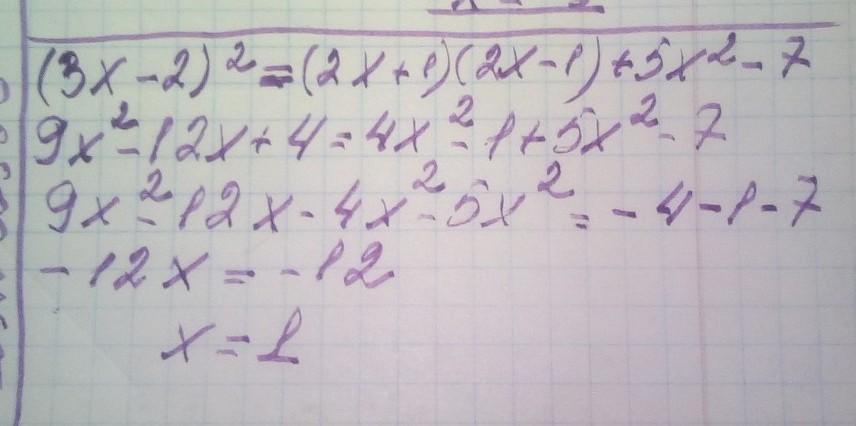 (3x-2)²=(2x+1)(2x-1)+5x²-7
9x²-12x+4=4x²-1+5x²-7
9x²-12x-4x²-5x²=-4-1-7
-12x=-12
x=1